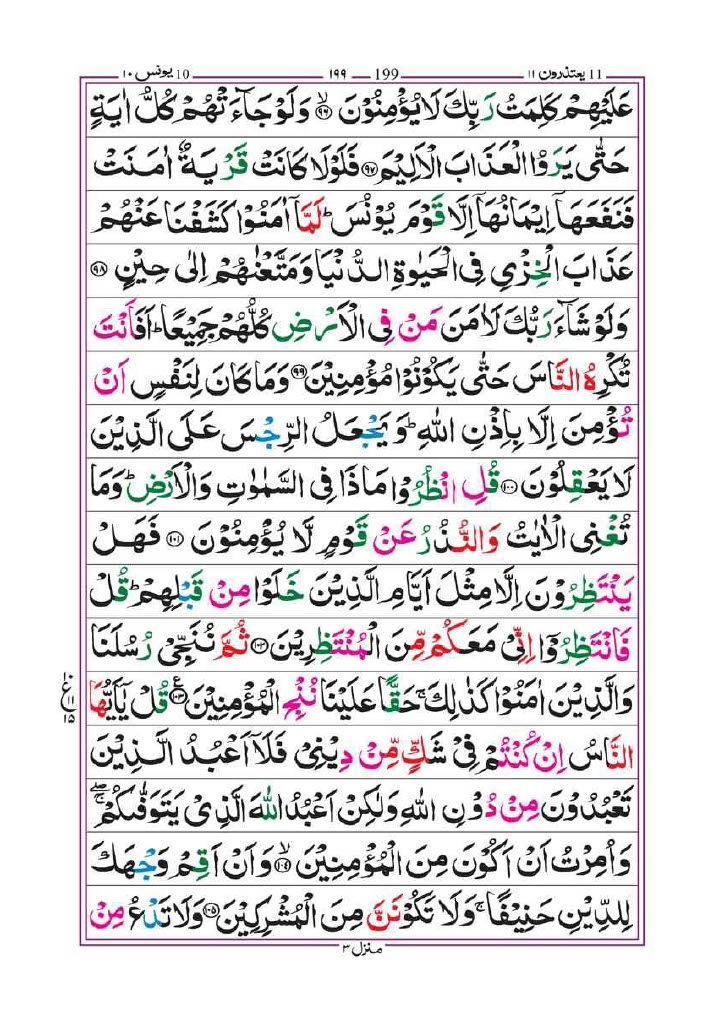 11 یعتذرون ۱۱ 199 ۱۹۹ 10 یونس ۱۰
عَلَيْهِمْ كَلِمَتُ رَبِّكَ لَا يُؤْمِنُوْنَ ۙ‏﴿۹۶﴾ وَلَوْ جَآءَتْهُمْ كُلُّ اٰيَةٍ
حَتّٰى يَرَوُا الْعَذَابَ الْاَلِيْمَ ﴿۹۷﴾ فَلَوْلَا كَانَتْ قَرْيَةٌ اٰمَنَتْ
فَنَفَعَهَاۤ اِيْمَانُهَاۤ اِلَّا قَوْمَ يُوْنُسَ ؕ لَمَّاۤ اٰمَنُوْا كَشَفْنَا عَنْهُمْ
عَذَابَ الْخِزْىِ فِى الْحَيٰوةِ الدُّنْيَا وَمَتَّعْنٰهُمْ اِلٰى حِيْنٍ ﴿۹۸﴾
وَلَوْ شَآءَ رَبُّكَ لَاٰمَنَ مَنْ فِى الْاَرْضِ كُلُّهُمْ جَمِيْعًا ؕ اَفَاَنْتَ
تُكْرِهُ النَّاسَ حَتّٰى يَكُوْنُوْا مُؤْمِنِيْنَ ﴿۹۹﴾ وَمَا كَانَ لِنَفْسٍ اَنْ
تُؤْمِنَ اِلَّا بِاِذْنِ اللّٰهِ ؕ وَيَجْعَلُ الرِّجْسَ عَلَى الَّذِيْنَ
لَا يَعْقِلُوْنَ ﴿۱۰۰﴾ قُلِ انْظُرُوْا مَاذَا فِى السَّمٰوٰتِ وَالْاَرْضِ ؕ وَمَا
تُغْنِى الْاٰيٰتُ وَالنُّذُرُ عَنْ قَوْمٍ لَّا يُؤْمِنُوْنَ ﴿۱۰۱﴾ فَهَلْ
يَنْتَظِرُوْنَ اِلَّا مِثْلَ اَيَّامِ الَّذِيْنَ خَلَوْا مِنْ قَبْلِهِمْ ؕ قُلْ
فَانْتَظِرُوْۤا اِنِّىْ مَعَكُمْ مِّنَ الْمُنْتَظِرِيْنَ ﴿۱۰۲﴾ ثُمَّ نُنَجِّىْ رُسُلَنَا
وَالَّذِيْنَ اٰمَنُوْا كَذٰلِكَ ۚ حَقًّا عَلَيْنَا نُنْجِ الْمُؤْمِنِيْنَ ﴿۱۰۳﴾ قُلْ يٰۤاَيُّهَا
النَّاسُ اِنْ كُنْتُمْ فِىْ شَكٍّ مِّنْ دِيْنِىْ فَلَاۤ اَعْبُدُ الَّذِيْنَ
تَعْبُدُوْنَ مِنْ دُوْنِ اللّٰهِ وَلٰكِنْ اَعْبُدُ اللّٰهَ الَّذِىْ يَتَوَفّٰٮكُمْ ۖۚ
وَاُمِرْتُ اَنْ اَكُوْنَ مِنَ الْمُؤْمِنِيْنَ ۙ‏﴿۱۰۴﴾ وَاَنْ اَقِمْ وَجْهَكَ
لِلدِّيْنِ حَنِيْفًا ۚ وَلَا تَكُوْنَنَّ مِنَ الْمُشْرِكِيْنَ ﴿۱۰۵﴾ وَلَا تَدْعُ مِنْ
منزل ۳